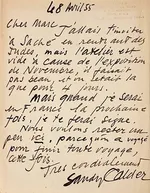 48 Avril 55
Cher Marc J'allais t'inviter
à Saché en rentrant des
Indes, mais l'atelier est
vide à cause de l'exposition
de Novembre, il faisait
pas beau, et on était là
que pour 4 jours.
Mais quand je serai
en France la prochaine
fois, je te ferai signe.
Nous voulons rester un
peu ici, parceque on a voyagé
pour finir toute voyage,
cette fois.
Très cordialement
Sandy Calder